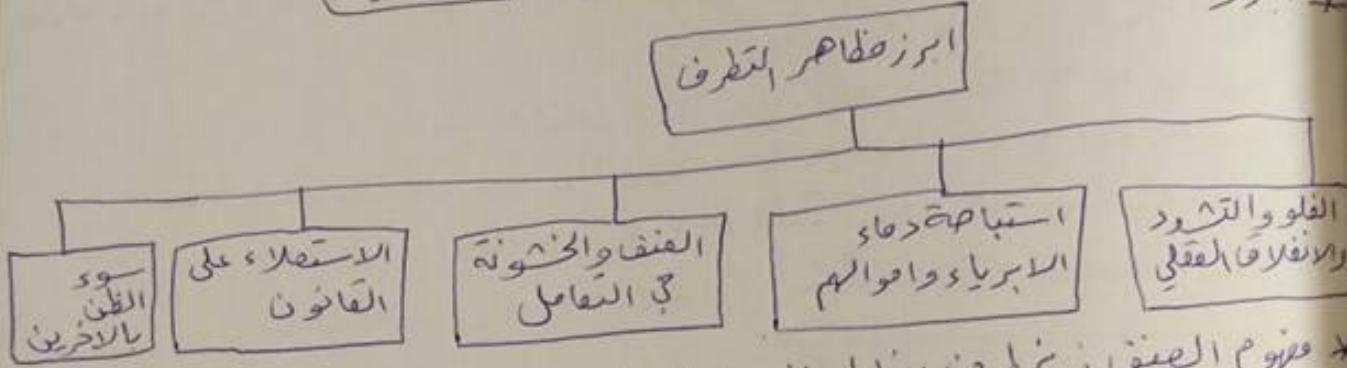 ابرز مظاهر التطرف
الغلو والتشدد
والانغلاق العقلي
استباحة دماء
الابرياء واموالهم
العنف والخشونة
في التعامل
الاستعلاء على
القانون
سوء
الظن
بالاخرين
* مفهوم العنف :